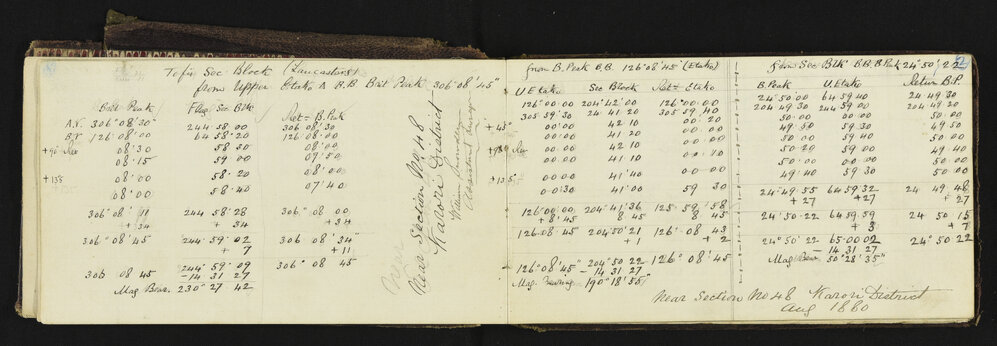 To fix Sec Block (Lancasters)
from Upper Etako & R.B Bolt Peak 306°08'45"
Bolt Peak Flag Sec Blk Ret= B.Peak
306°08'30" 244·58·00 306·08·30
126·08·00 64·58·20 126·08·00
08'30 58·50 08·00
08·15 59·00 07'50
+135 08'00 58·20 08'00
08'00 58·40 07'40
306°08' 11 244·58·28 306°08 00
+34 +34 +34
306°08'45 244°59·02 306°08'34"
+7 +11
306 08 45 244°59·09 306° 08 45
-14 31 27
Mag Bear. 230°27·42
Near Section No 48
Karori District
Assistant Surveyor
from B.Peak B.B. 126°08'45" (Etako)
U Etako Sec Block Ret= Etako
126°00·00 204°42·00 126°00·00
305 59·30 24·41·20 305 59'40
+45" 00·00 42·10 00·20
00·00 41·20 00·00
00·00 42·10 00·00
00·00 41·10 00·10
+135" 00·00 41'40 00·00
0·0'30 41'00 59 30
126°00'00 204°41'36 125 59'58
+8'45 8 45 8 45
126·08·45 204°50'21 126°08 43
+1 +2
126°08'45" 204°50 22 126°08'45
-14 31 27
Mag. Bearing 190°18'55"
from Sec Blk B.B. B.Peak 24°50'22
B.Peak U.Etako Return B.P.
24°50'00 64 59 40 24 49 30
204 49 30 244 59 00 204 49 20
50·00 00·00 50 00
49·50 59 30 49 50
50·00 59 40 50 00
50·20 59 00 49 40
50·00 00·00 50 00
49 40 59 30 50·00
24°49 55 64 59 32 24 49 48
+27 +27 +27
24°50·22 64 59 59 24 50 15
+3 +7
24°50'22 65 00 02 24°50 22
-14 31 27
Mag Bear 50°28'35"
Near Section No 48 Karori District
Aug 1880